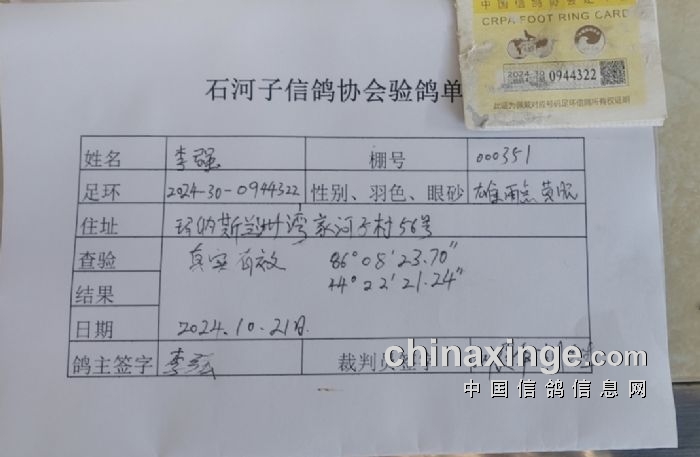 CRPA FOOT RING CARD
2024-30 0944322
此证为佩戴对应号码足环信鸽所有权证明
石河子信鸽协会验鸽单
姓名 李强 棚号 000351
足环 2024-30-0944322 性别、羽色、眼砂 雄雨点黄眼
住址 玛纳斯兰州湾 家河子村56号
查验 真实有效 86°08'23.70"
结果 44°22'21.24"
日期 2024.10.21日.
鸽主签字 李强 裁判员签字
chinaxinge.com
中国信鸽信息网